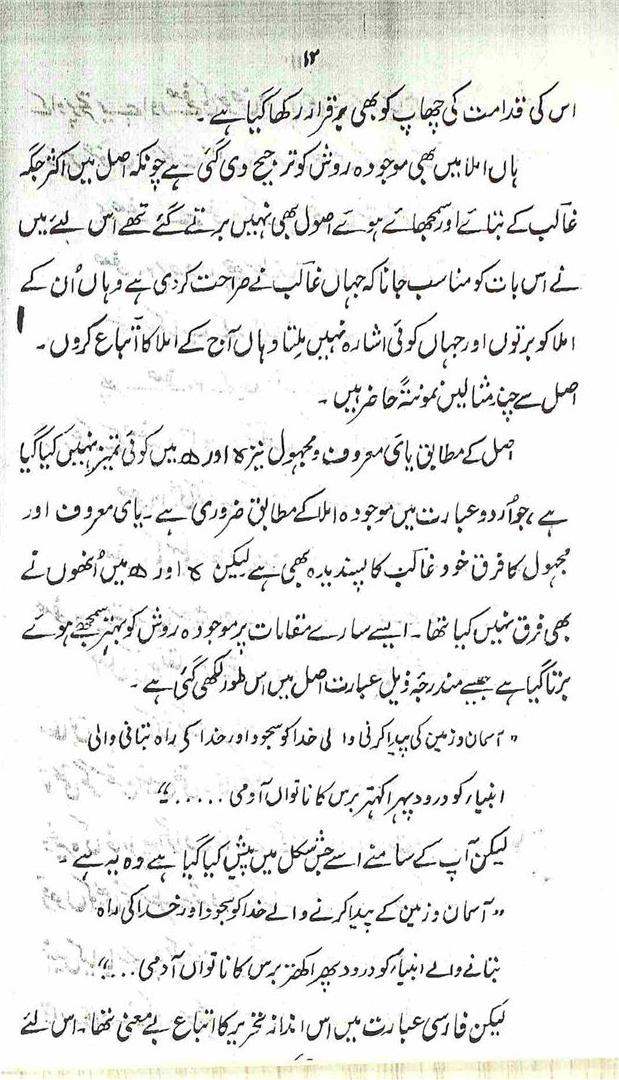 ۱۲
اس کی قدامت کی چھاپ کو بھی برقرار رکھا گیا ہے۔
ہاں املا میں بھی موجودہ روش کو ترجیح دی گئی ہے چونکہ اصل میں اکثر جگہ
غالب کے بتائے اور سمجھائے ہوئے اصول بھی نہیں برتے گئے تھے اس لئے میں
نے اس بات کو مناسب جانا کہ جہاں غالب نے صراحت کر دی ہے وہاں اُن کے
املا کو برتوں اور جہاں کوئی اشارہ نہیں ملتا وہاں آج کے املا کا اتباع کروں۔
اصل سے چند مثالیں نمونتہً حاضر ہیں۔
اصل کے مطابق یای معروف و مجہول نیز ہ اور ھ میں کوئی تمیز نہیں کیا گیا
ہے، جو اُردو عبارت میں موجودہ املا کے مطابق ضروری ہے۔ یای معروف اور
مجہول کا فرق خود غالب کا پسندیدہ بھی ہے لیکن ہ اور ھ میں اُنھوں نے
بھی فرق نہیں کیا تھا۔ ایسے سارے مقامات پر موجودہ روش کو بہتر سمجھتے ہوئے
برتا گیا ہے جیسے مندرجۂ ذیل عبارت اصل میں اس طور لکھی گئی ہے۔
"آسمان و زمین کی پیدا کرنی والی خدا کو سجود اور خدا کی راہ بتانی والی
انبیاء کو درود پہر اکہتر برس کا ناتواں آدمی ......"
لیکن آپ کے سامنے اسے جس شکل میں پیش کیا گیا ہے وہ یہ ہے۔
"آسمان و زمین کے پیدا کرنے والے خدا کو سجود اور خدا کی راہ
بتانے والے انبیاء کو درود پھر اکھتر برس کا ناتواں آدمی ...."
لیکن فارسی عبارت میں اس انداز تحریر کا اتباع بے معنی تھا۔ اس لئے